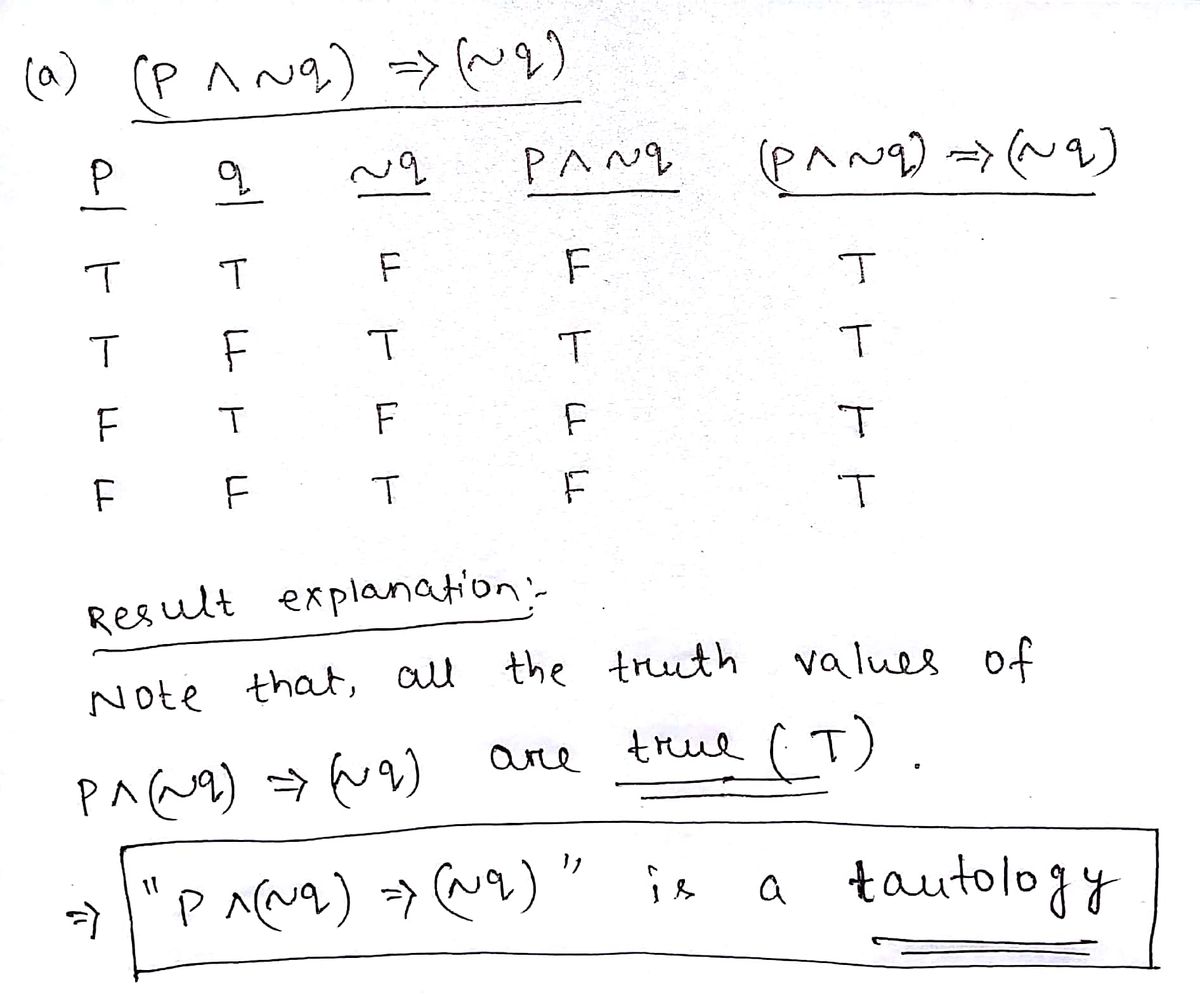 (a) (P ∧ ~q) => (~q)
P q ~q P ∧ ~q (P ∧ ~q) => (~q)
T T F F T
T F T T T
F T F F T
F F T F T
Result explanation:-
Note that, all the truth values of
P ∧ (~q) => (~q) are true (T).
=> "P ∧ (~q) => (~q)" is a tautology